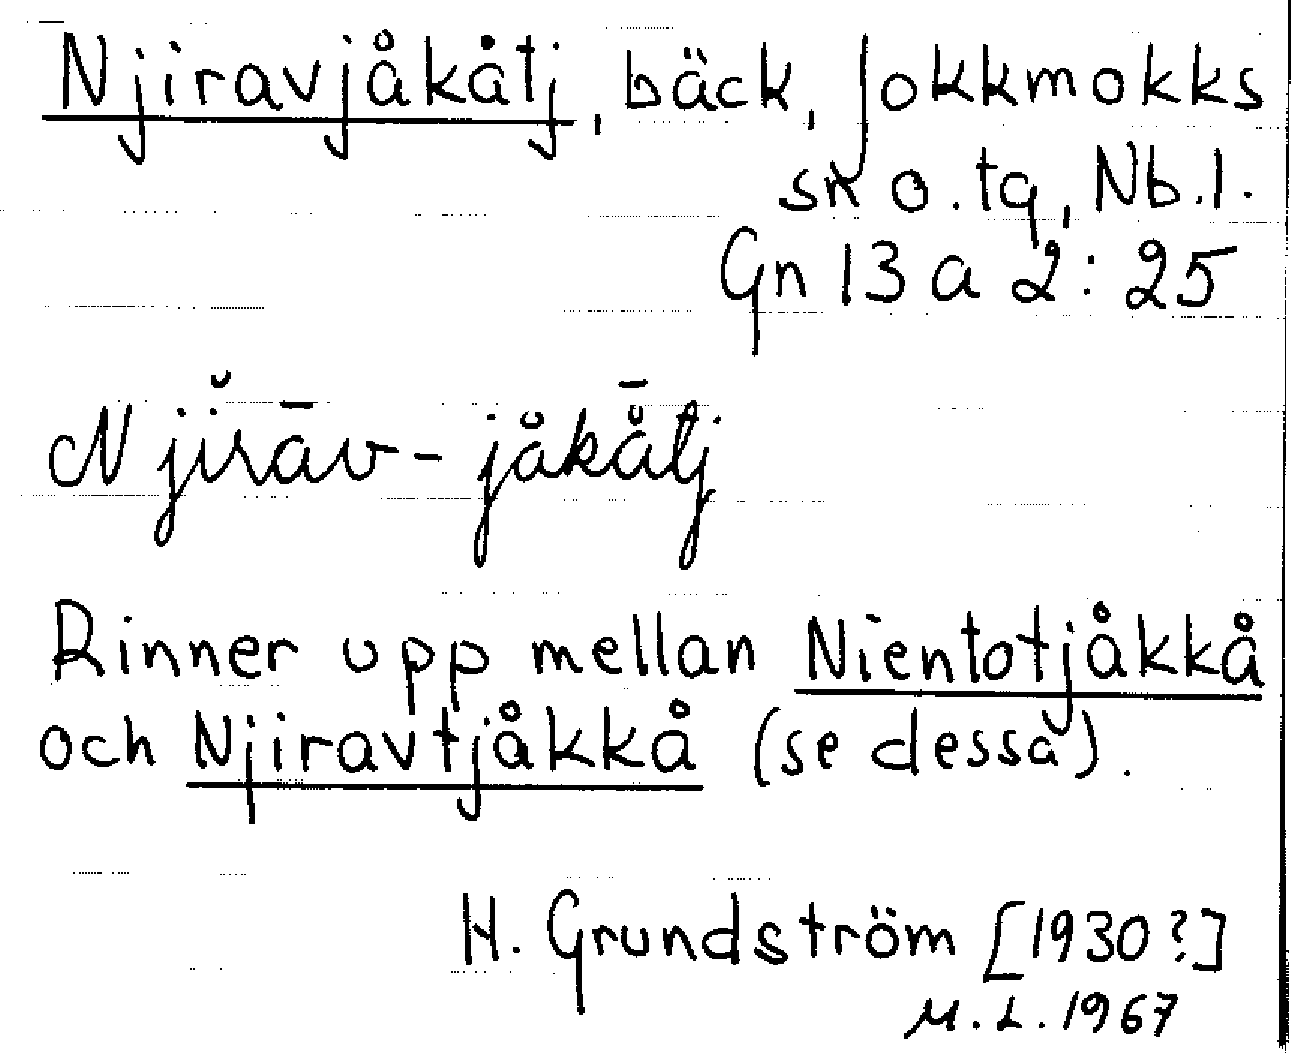 Njiravjåkåtj, bäck, Jokkmokks
sn o. tg, Nb.l.
Gn 13 a 2:25
Njĭrāv-jåkå̄tj
Rinner upp mellan Nientotjåkkå
och Njiravtjåkkå (se dessa).
H. Grundström [1930?]
M.L. 1967